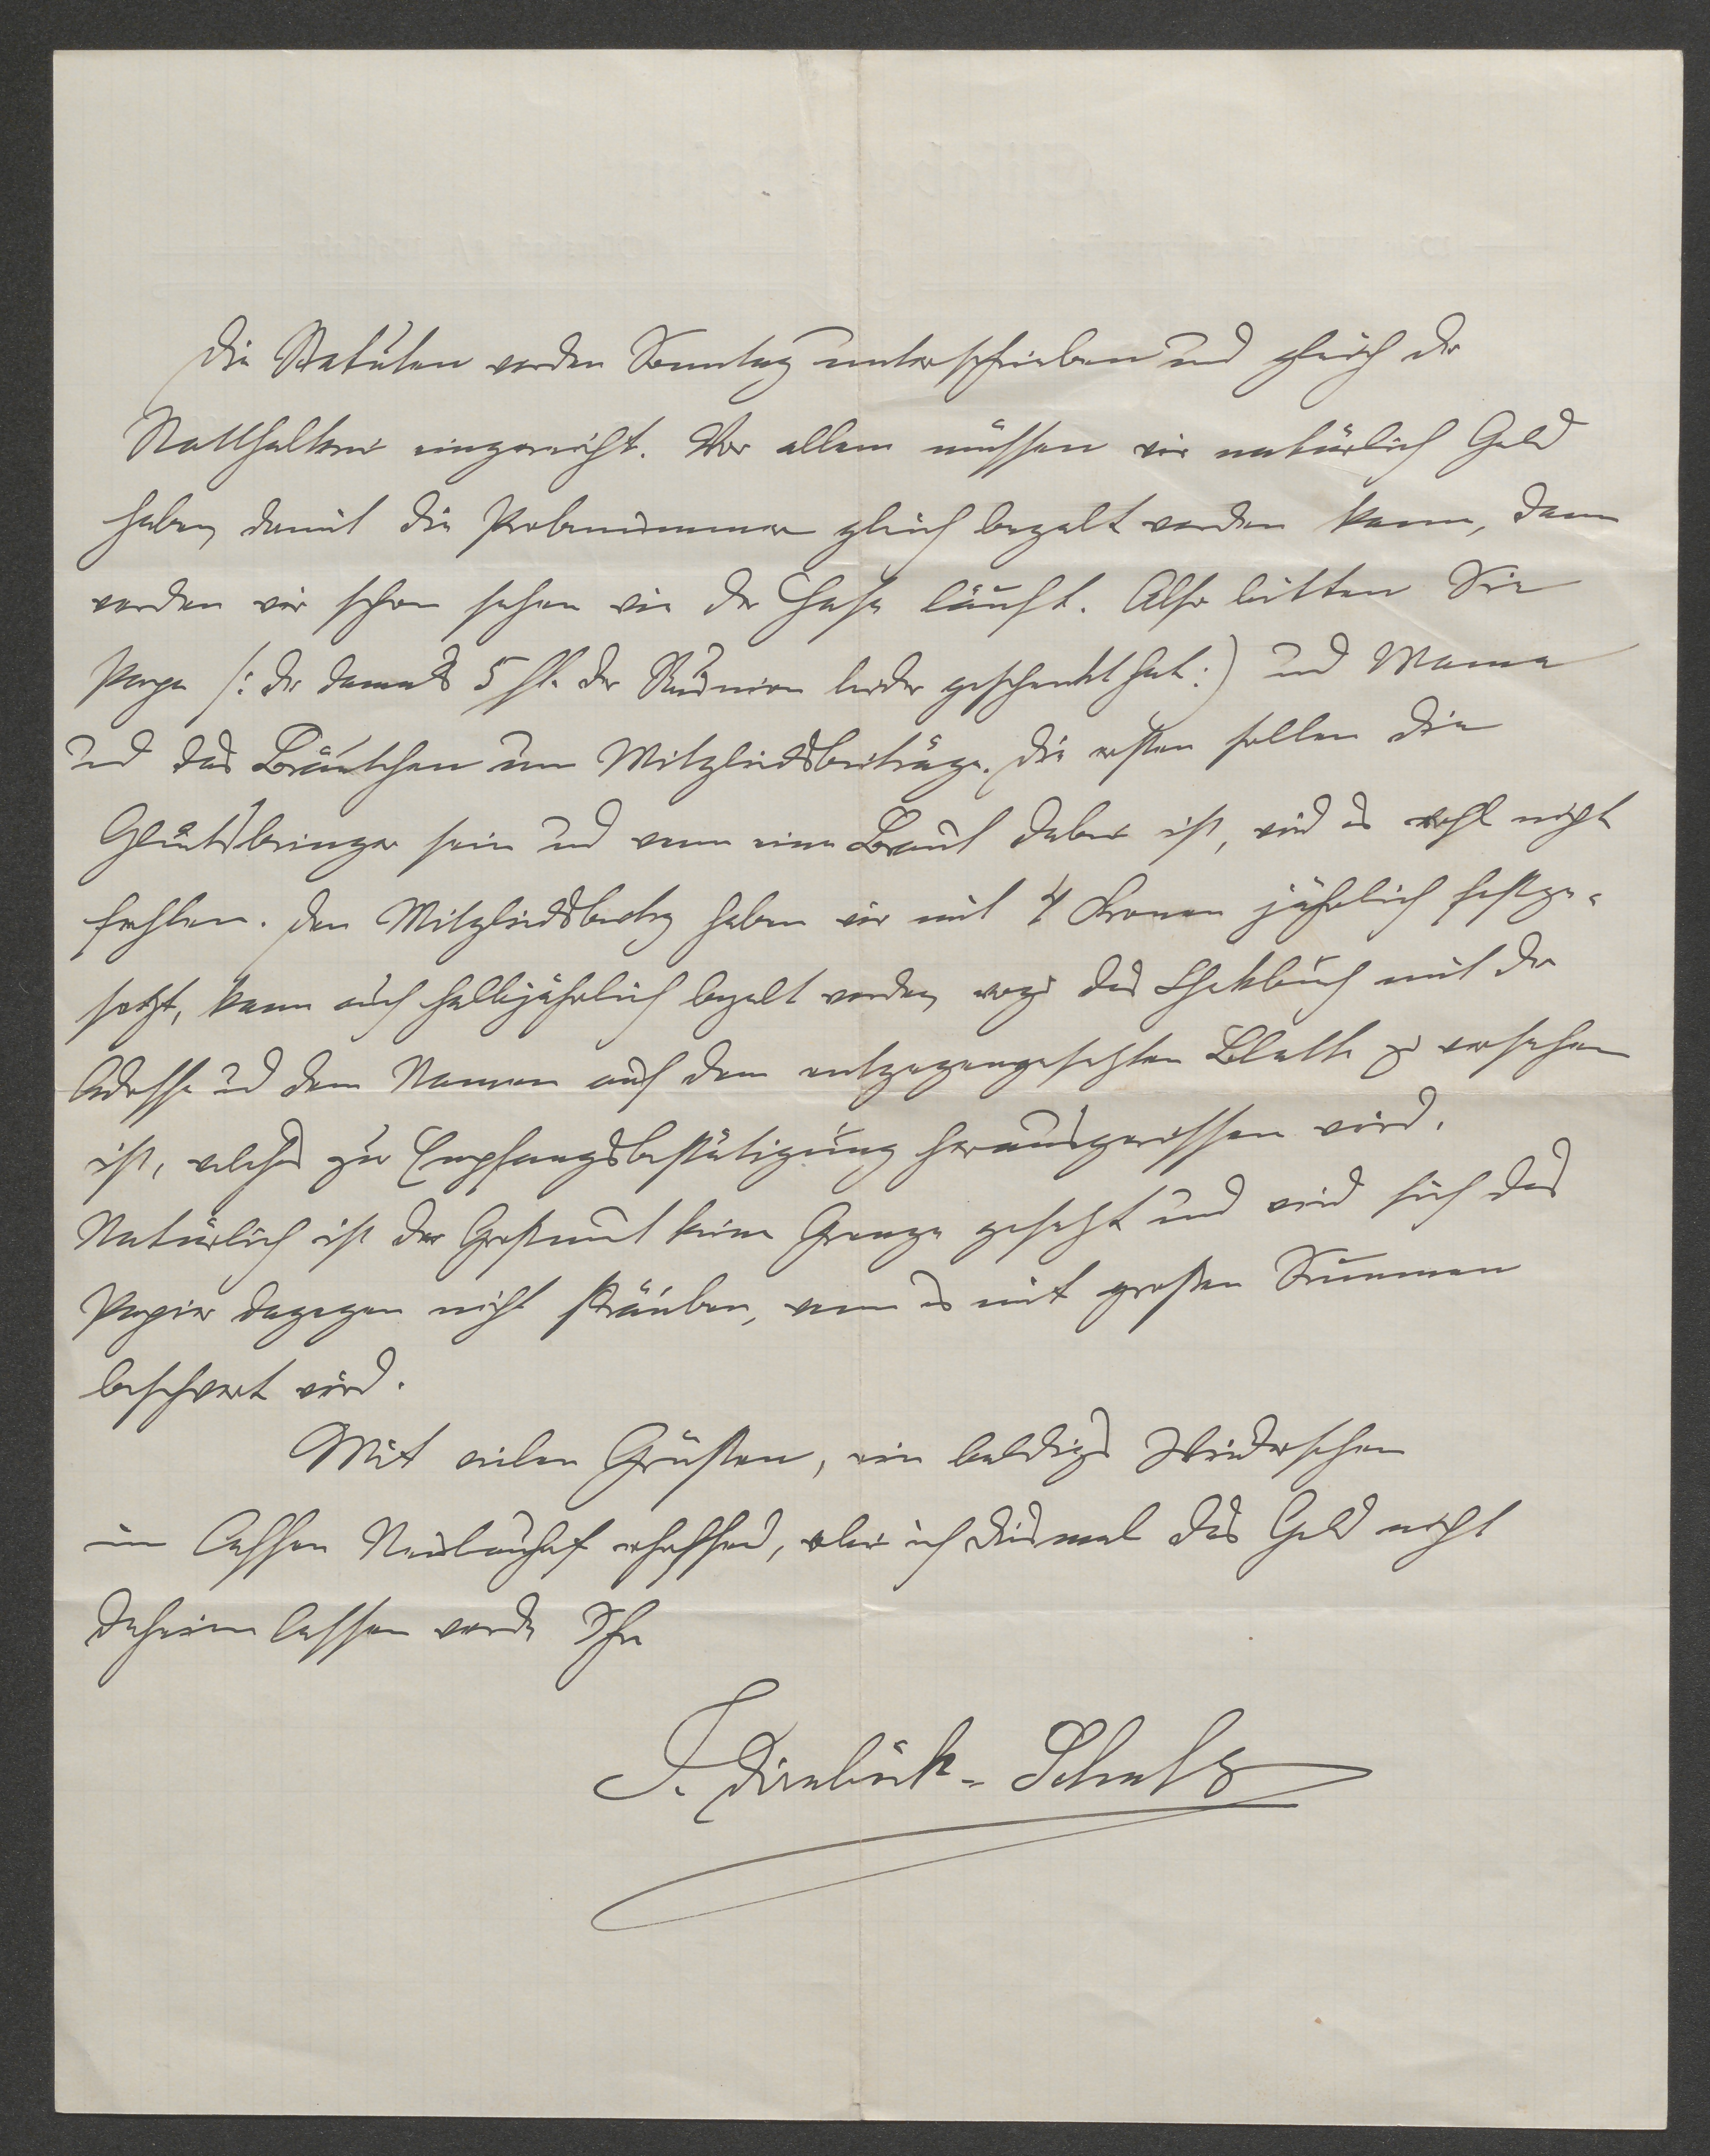 Die Statuten werden Sonntag unterschrieben und gleich der
Statthalterei eingereicht. Vor allem müssen wir natürlich Geld
haben, damit die Probenummer gleich bezalt werden kann, dann
werden wir schon sehen wie der Hase läuft. Also bitten Sie
Papa /: der damals 5 fl. der leider geschenkt hat :) und Mama
und das Bräutchen um Mitgliedsbeiträge. Die ersten sollen die
Glücksbringer sein und wenn eine Braut dabei ist, wird es wohl nicht
fehlen. Den Mitgliedsbeitrag haben wir mit 4 Kronen jährlich festge-
setzt, kann auch halbjährlich bezalt werden, wozu das Chekbuch mit der
Adresse und dem Namen auf dem entgegengesetzten Blatte zu versehen
ist, welches zur Empfangsbestätigung herausgerissen wird.
Natürlich ist der Großmut keine Grenze gesetzt und wird sich das
Papier dagegen nicht sträuben, wenn es mit großen Summen
beschwert wird.
Mit vielen Grüßen, ein baldiges Wiedersehen
im Neulinghof erhoffend, wo ich diesmal das Geld nicht
daheim lassen werde Ihr
J. - Schulz